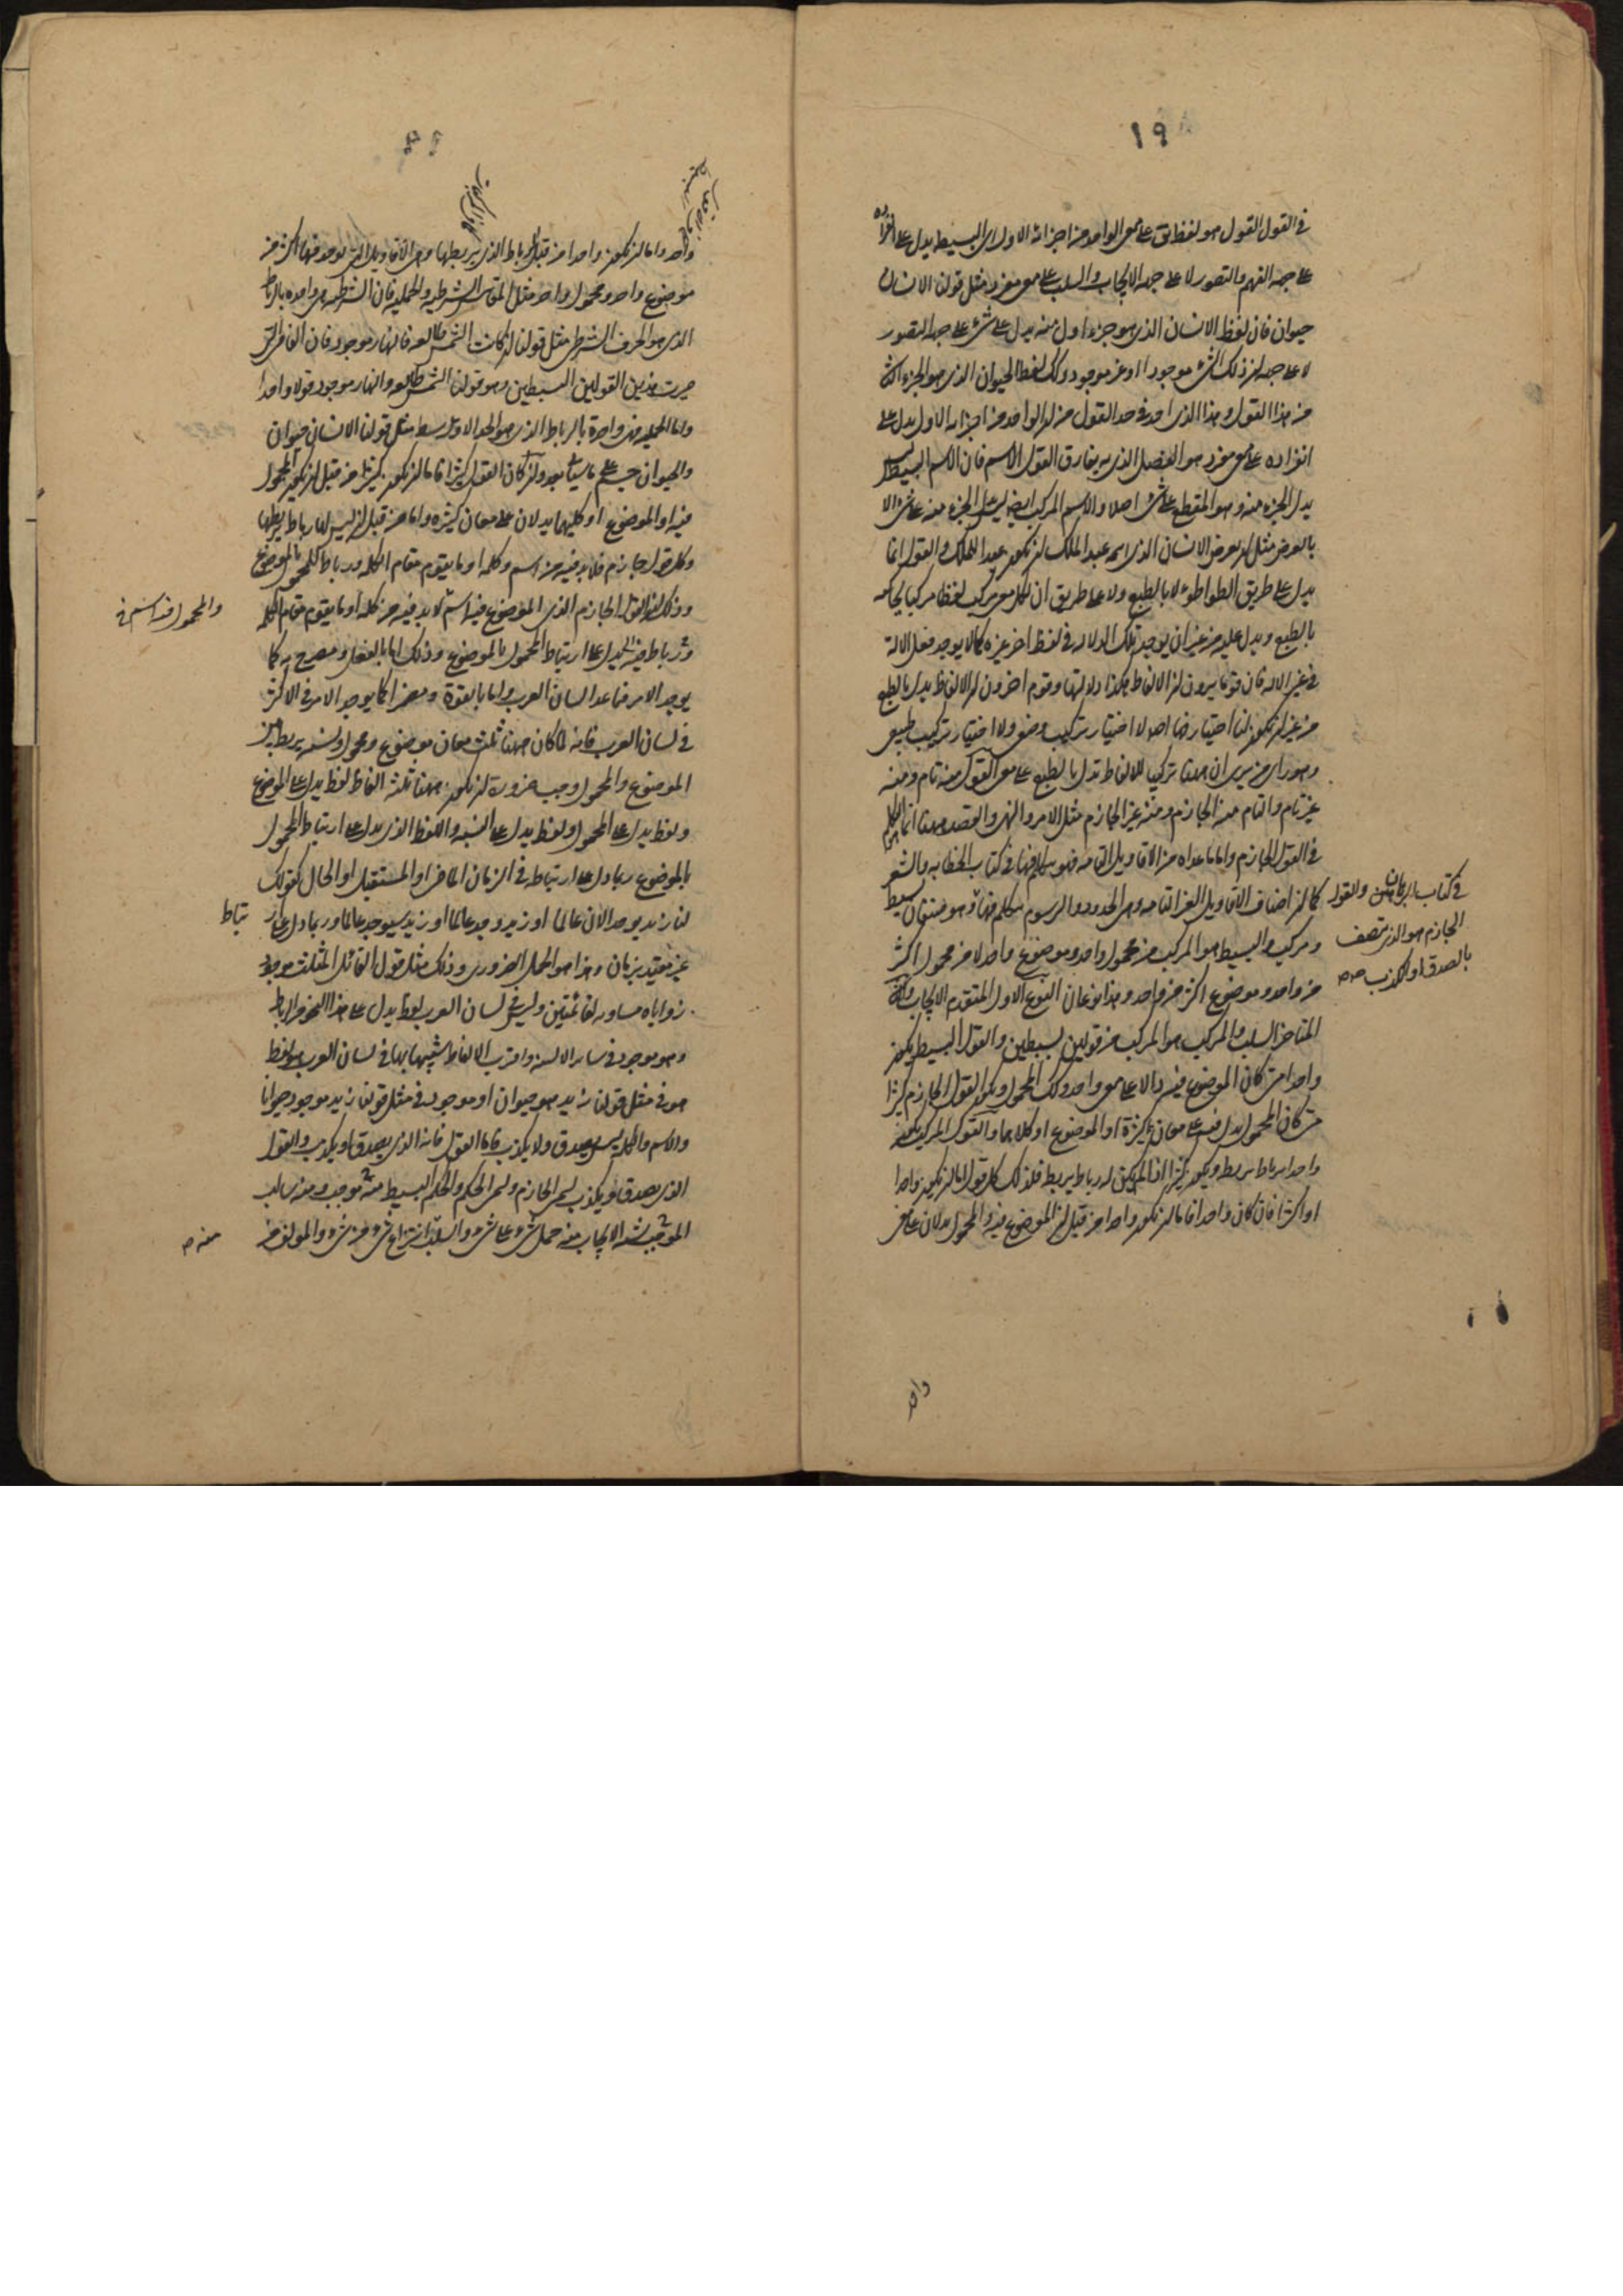 ١٩
في القول القول هو لفظ دال على معنى الواحد من اجزائه الاول اى البسيط يدل على انفراده
على جهة الفهم والتصور لا على جهة الايجاب والسلب على معنى مفرد مثل قولنا الانسان
حيوان فان لفظ الانسان الذى هو جزء اول منه يدل على شئ على جهة التصور
لا على جهة ان ذلك الشئ موجودا او غير موجود وكك لفظ الحيوان الذى هو الجزء الثانى
من هذا القول وهذا الذى اخذ فى حد القول من ان الواحد من اجزائه الاول يدل على
انفراده على معنى مفرد هو الفصل الذى به يفارق القول الاسم فان الاسم البسيط ليس
يدل الجزء منه وهو المقطع على شئ اصلا والاسم المركب ايضا ليس يدل الجزء منه على شئ الا
بالعرض مثل ان يعرض الانسان الذى اسمه عبد الملك ان يكون عبد الملك والقول انما
يدل على طريق التواطؤ لا بالطبع ولا على طريق ان لكل معنى مركب لفظا مركبا يحاكيه
بالطبع ويدل عليه من غير ان يوجد تلك الدلالة فى لفظ اخر غيره كما لا يوجد فعل الالة
فى غير الالة فان قوما يرون ان الالفاظ هكذا دلالتها وقوم اخرون ان الالفاظ يدل بالطبع
من غير ان يكون لنا اختيار فيها اصلا لا اختيار تركيب وضعى ولا اختيار تركيب طبيعى
وهو راى من يرى ان ههنا تركيبا للالفاظ تدل بالطبع على معنى والقول منه تام ومنه
غير تام والتام منه الجازم ومنه غير الجازم مثل الامر والنهى والقصد ههنا انما التكلم هو
فى القول الجازم واما ما عداه من الاقاويل التامة فهو يتكلم فيها فى كتاب الخطابه والشعر
كما ان اصناف الاقاويل الغير التامه وهى الحدود والرسوم يتكلم فيها وهو صنفان بسيط
فى كتاب البرهان والقول
الجازم هو الذى يتصف
بالصدق او الكذب صح
ومركب والبسيط هو المركب من محمول واحد وموضوع واحد لا من محمول اكثر
من واحد وموضوع اكثر من واحد وهذا نوعان النوع الاول المتقدم الايجاب والثانى
المتاخر السلب والمركب هو المركب من قولين بسيطين والقول البسيط يكون
واحدا متى كان الموضوع فيه دالا على معنى واحد وكك المحمول ويكون القول الجازم كثيرا
متى كان المحمول يدل فيه على معان كثيرة او الموضوع او كلاهما والقول المركب يكون
واحدا برباط يربط ويكون كثيرا اذا لم يكن له رباط يربط فلذلك كل قول اما ان يكون واحدا
او اكثر فان كان واحدا فاما ان يكون واحدا من قبل ان الموضوع فيه والمحمول يدلان على معنى
واحد
واحد واما ان يكون واحدا من قبل الرباط الذى يربطها وهى الاقاويل التى يوجد فيها اكثر من
موضوع واحد ومحمول واحد مثل المقاييس الشرطيه والحمليه فان الشرطيه هى واحده بالرباط
الذى هو الحرف الشرطى مثل قولنا ان كانت الشمس طالعه فالنهار موجود فان الفاء التى
صيرت هذين القولين البسيطين وهو قولنا الشمس طالعه والنهار موجود قولا واحدا
واما الحمليه فهى واحدة بالرباط الذى هو الحد الاوسط مثل قولنا الانسان حيوان
والحيوان جسم وان كان القول كثيرا فاما ان يكون كثيرا من قبل ان يكون المحمول
فيه او الموضوع او كليهما يدلان على معان كثيره واما من قبل انه ليس لها رباط يربطها
وكل قول جازم فلابد فيه من اسم وكلمه او ما يقوم مقام الكلمه ورباط للمحمول بالموضوع
وذلك ان القول الجازم الذى الموضوع فيه اسم لا بد فيه من كلمه او ما يقوم مقام الكلمه
والمحمول فيه اسم
ورباط فيه يدل على ارتباط المحمول بالموضوع وذلك اما بالفعل ومصرح به كما
يوجد الامر فيما عدا لسان العرب واما بالقوة ومضمرا كما يوجد الامر فى الاكثر
فى لسان العرب فانه لما كان ههنا ثلث معان موضوع ومحمول ونسبه يربط بين
الموضوع والمحمول وجب ضرورة ان يكون ههنا ثلثة الفاظ لفظ يدل على الموضوع
ولفظ يدل على المحمول ولفظ يدل على النسبه واللفظ الذى يدل على ارتباط المحمول
بالموضوع ربما دل على ارتباطه فى الزمان الماضى او المستقبل او الحال كقولك
لنا زيد يوجد الان عالما او زيد وجد عالما او زيد سيوجد عالما وربما دل على ارتباط
غير مقيد بزمان وهذا هو الحمل الضرورى وذلك مثل قول القائل المثلث موجود
زواياه مساويه لقائمتين وليس فى لسان العرب لفظ يدل على هذا النحو من الرباط
وهو موجود فى سائر الالسنه واقرب الالفاظ شبها بها فى لسان العرب هو لفظ
هو فى مثل قولنا زيد هو حيوان او موجود فى مثل قولنا زيد موجود حيوانا
والاسم والكلمه ليس يصدق ولا يكذب فاما القول فانه الذى يصدق او يكذب والقول
الذى يصدق او يكذب يسمى الجازم ويسمى الحكم والحكم البسيط منه موجب ومنه سالب
الموجب منه الايجاب منه حمل شئ على شئ والسلب انتزاع شئ من شئ والمولف من
منه صح